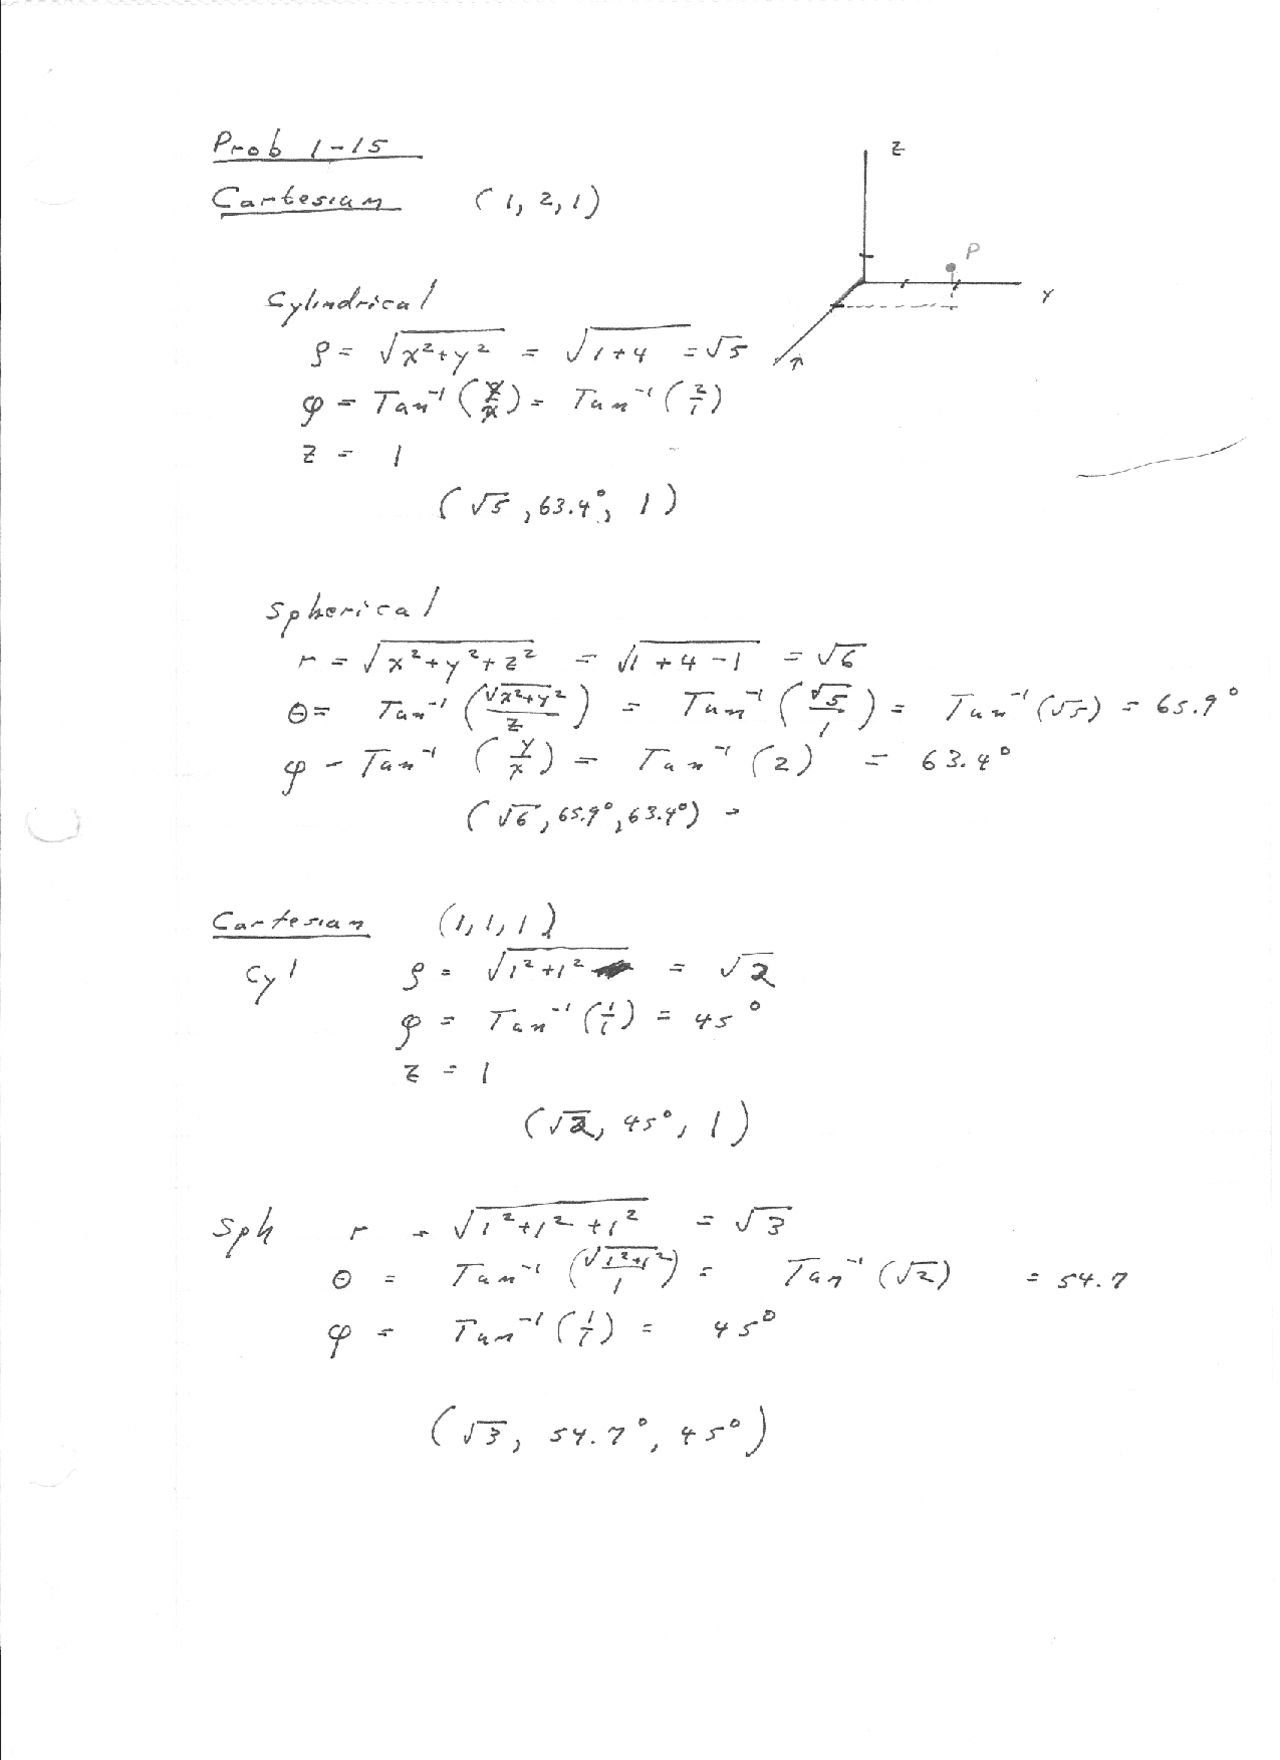 Prob 1-15
Cartesian (1, 2, 1)
Z
P
Y
Cylindrical
ρ = √(x²+y²) = √(1+4) = √5
φ = Tan⁻¹(y/x) = Tan⁻¹(2/1)
z = 1
(√5, 63.4°, 1)
Spherical
r = √(x²+y²+z²) = √(1+4-1) = √6
θ = Tan⁻¹(√(x²+y²)/z) = Tan⁻¹(√5/1) = Tan⁻¹(√5) = 65.9°
φ - Tan⁻¹(y/x) = Tan⁻¹(2) = 63.4°
(√6, 65.9°, 63.4°)
Cartesian (1, 1, 1)
Cyl ρ = √(1²+1²) = √2
φ = Tan⁻¹(1/1) = 45°
z = 1
(√2, 45°, 1)
Sph r = √(1²+1²+1²) = √3
θ = Tan⁻¹(√(1²+1²)/1) = Tan⁻¹(√2) = 54.7
φ = Tan⁻¹(1/1) = 45°
(√3, 54.7°, 45°)